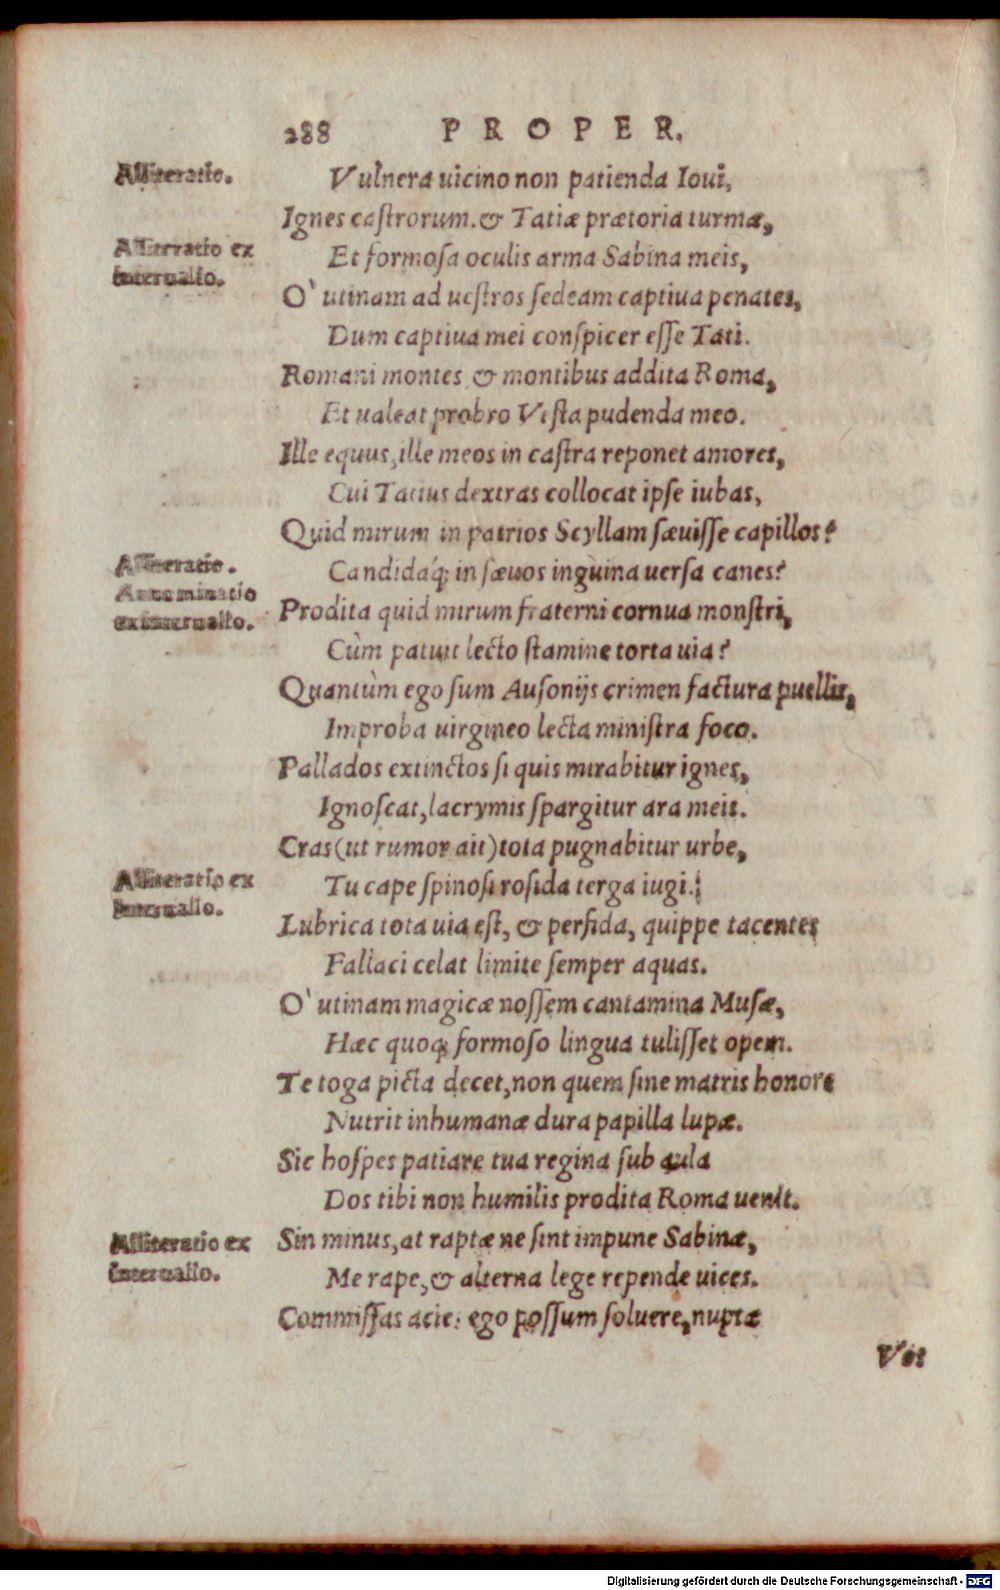 288 PROPER.
Alliteratio.
Vulnera uicino non patienda Ioui,
Ignes castrorum. & Tatiæ prætoria turmæ,
Alliteratio ex
interuallo.
Et formosa oculis arma Sabina meis,
O' utinam ad uestros sedeam captiua penates,
Dum captiua mei conspicer esse Tati.
Romani montes & montibus addita Roma,
Et ualeat probro Vesta pudenda meo.
Ille equus, ille meos in castra reponet amores,
Cui Tatius dextras collocat ipse iubas,
Quid mirum in patrios Scyllam sæuisse capillos?
Alliteratio.
Annominatio
ex interuallo.
Candidáq; in sæuos inguina uersa canes?
Prodita quid mirum fraterni cornua monstri,
Cùm patuit lecto stamine torta uia?
Quantùm ego sum Ausonijs crimen factura puellis,
Improba uirgineo lecta ministra foco.
Pallados extinctos si quis mirabitur ignes,
Ignoscat, lacrymis spargitur ara meis.
Cras (ut rumor ait) tota pugnabitur urbe,
Alliteratio ex
interuallo.
Tu cape spinosi rosida terga iugi.
Lubrica tota uia est, & perfida, quippe tacentes
Fallaci celat limite semper aquas.
O' utinam magicæ nossem cantamina Musæ,
Hæc quoq; formoso lingua tulisset opem.
Te toga picta decet, non quem sine matris honore
Nutrit inhumanæ dura papilla lupæ.
Sic hospes patiare tua regina sub aula
Dos tibi non humilis prodita Roma uenit.
Alliteratio ex
interuallo.
Sin minus, at raptæ ne sint impune Sabinæ,
Me rape, & alterna lege repende uices.
Commissas acies ego possum soluere, nuptæ
Vos
Digitalisierung gefördert durch die Deutsche Forschungsgemeinschaft - DFG